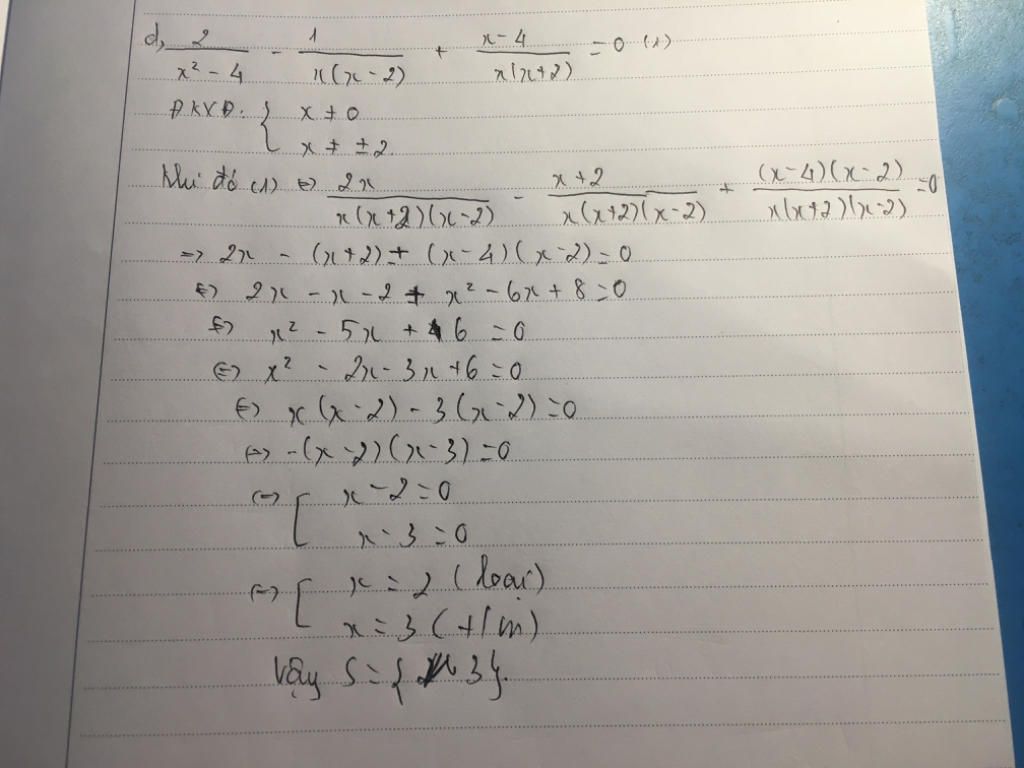 d, 2/(x² - 4) - 1/(x(x - 2)) + (x - 4)/(x(x+2)) = 0 (1)
ĐKXĐ: { x ≠ 0
x ≠ ±2.
Khi đó (1) ⇔ 2x/(x(x+2)(x-2)) - (x+2)/(x(x+2)(x-2)) + ((x-4)(x-2))/(x(x+2)(x-2)) = 0
=> 2x - (x+2) + (x-4)(x-2) = 0
⇔ 2x - x - 2 + x² - 6x + 8 = 0
⇔ x² - 5x + 6 = 0
⇔ x² - 2x - 3x + 6 = 0
⇔ x(x-2) - 3(x-2) = 0
⇔ -(x-2)(x-3) = 0
⇔ [ x - 2 = 0
x - 3 = 0
⇔ [ x = 2 (loại)
x = 3 (t/m)
Vậy S = { 3}.